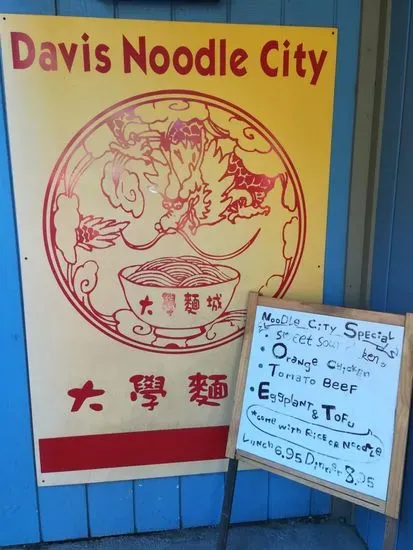 Davis Noodle City
大學麵城
大學麵
Noodle City Special
• Sweet Sour
• Orange Chicken
• Tomato Beef
• Eggplant & Tofu
*come with Rice or Noodle
Lunch 6.95 Dinner 8.95